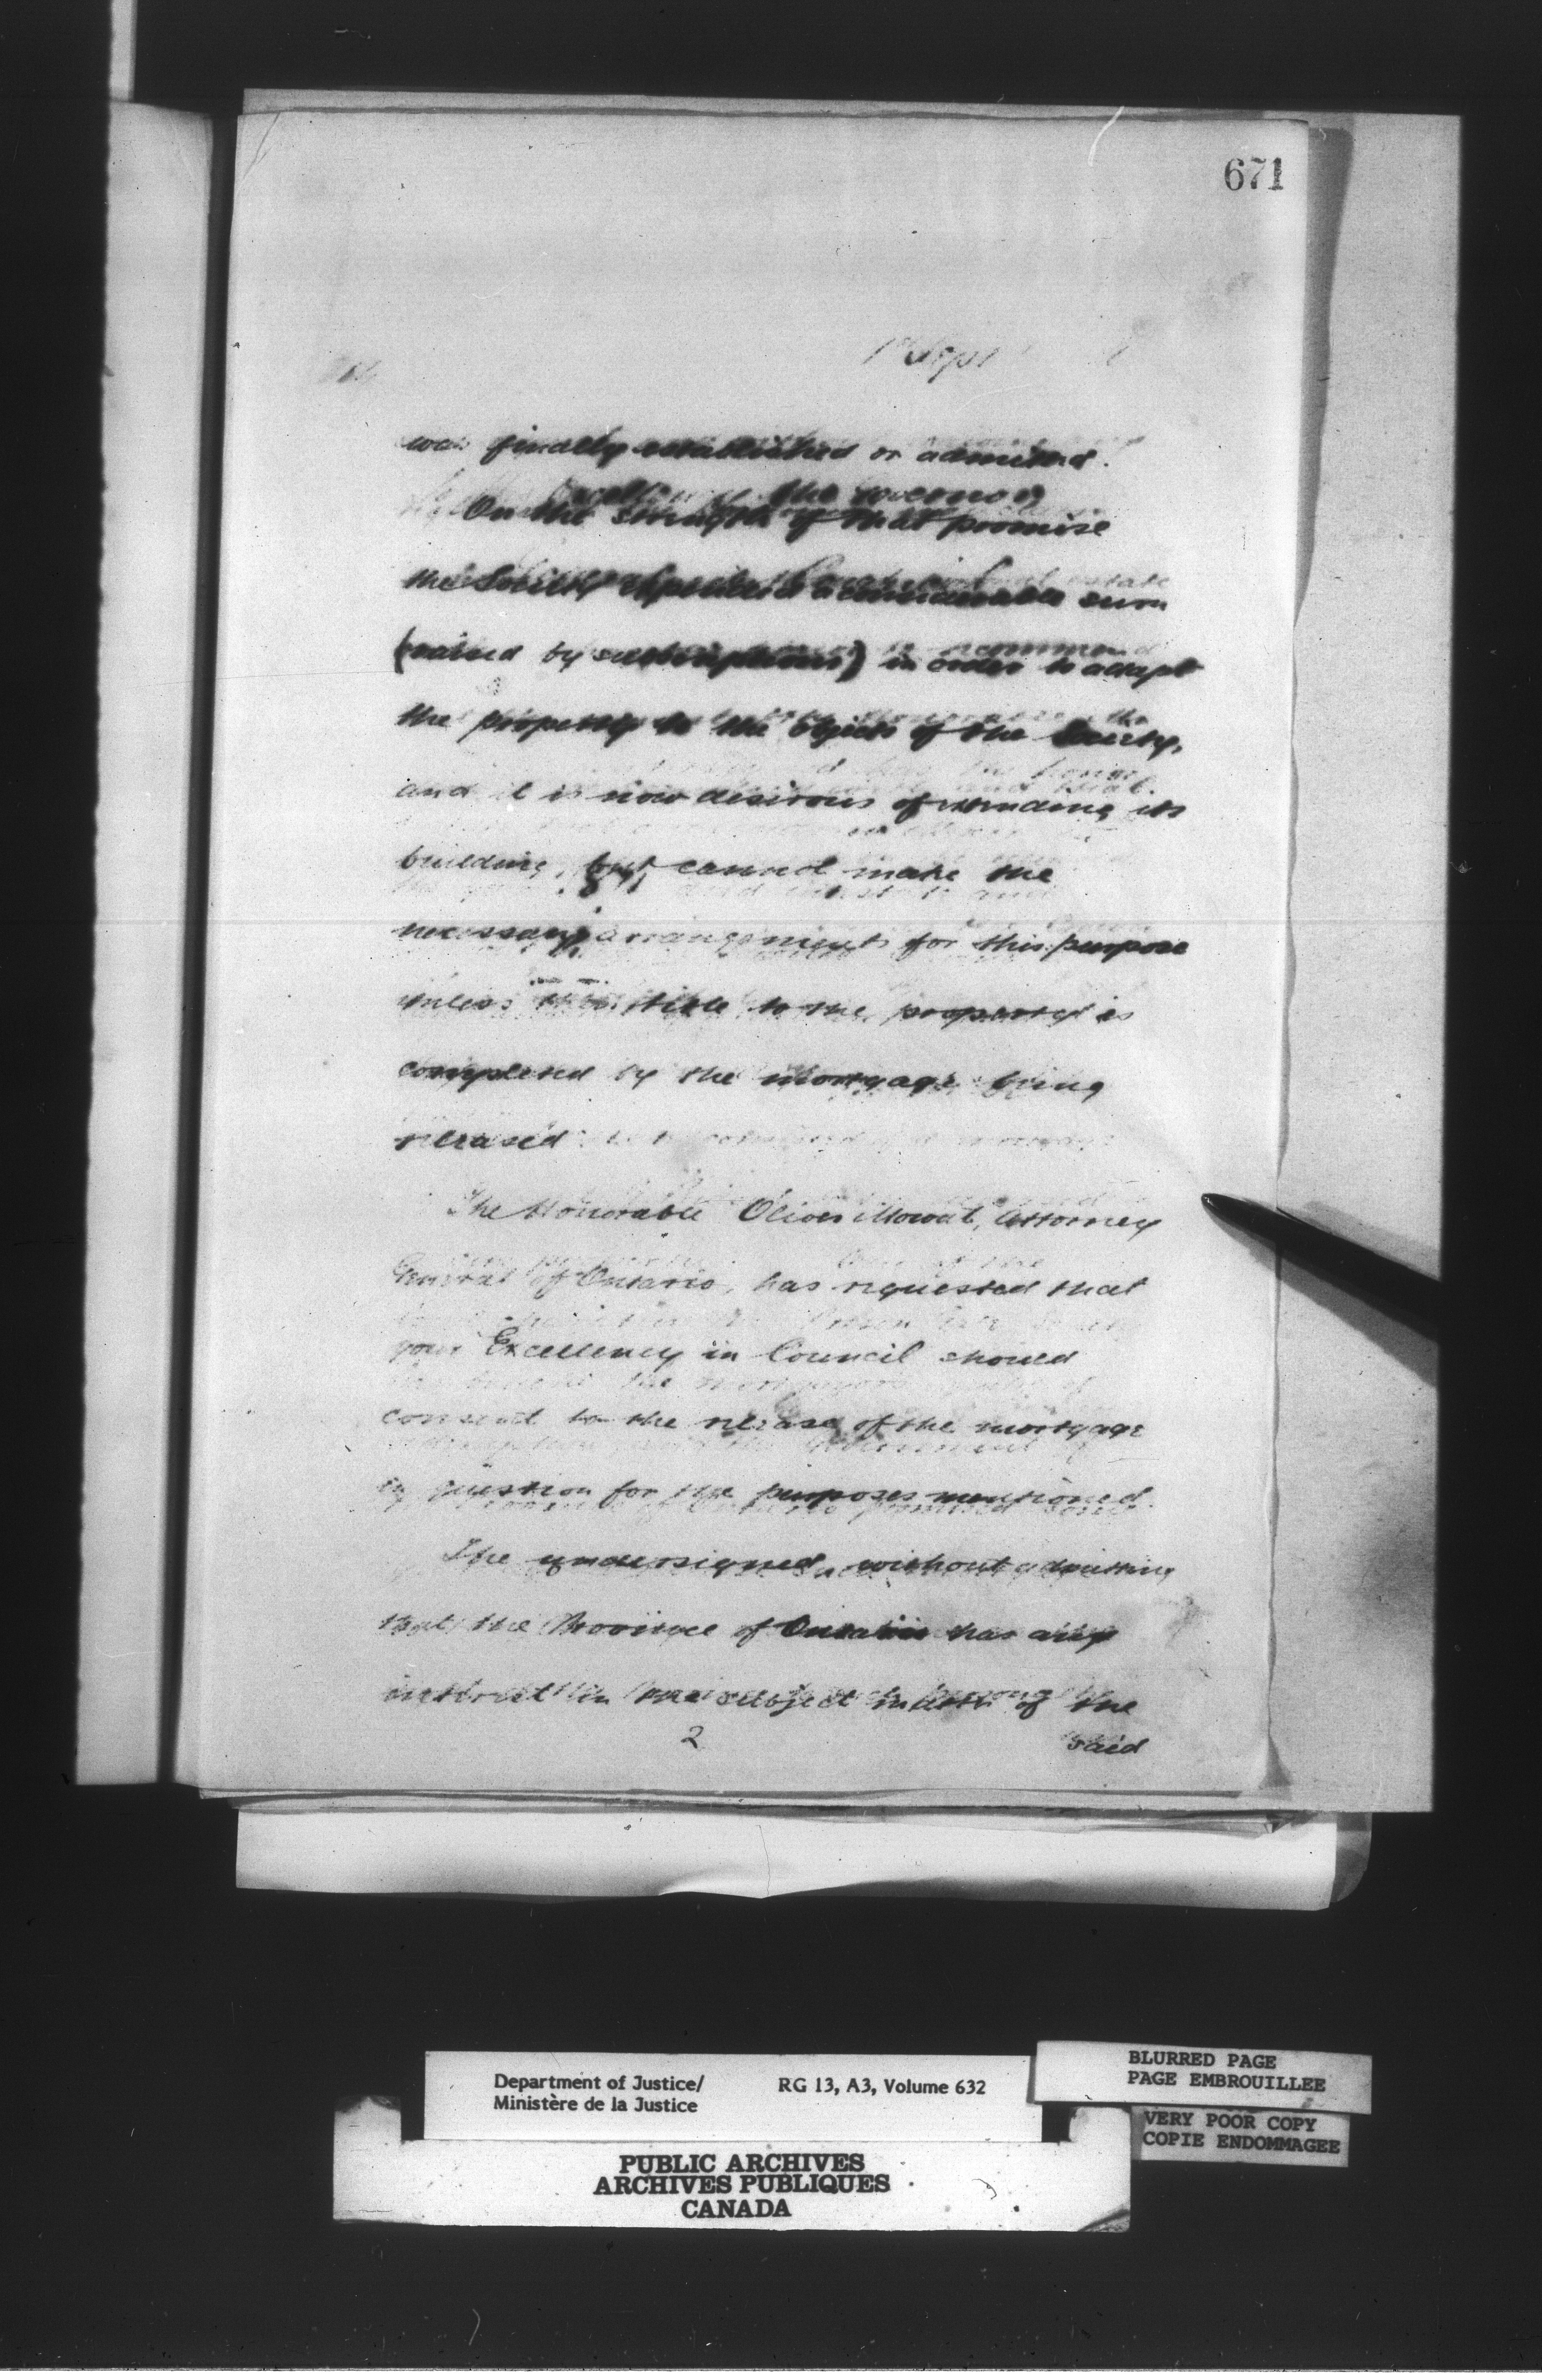 671
1st Sept
was finally established or admitted.
On the strength of that promise
the Society expended a considerable sum
(raised by subscriptions) in order to adapt
the property to the objects of the Society,
and it is now desirous of extending its
building, but cannot make the
necessary arrangements for this purpose
unless its title to the property is
completed by the mortgage being
released.
The Honorable Oliver Mowat, Attorney
General of Ontario, has requested that
your Excellency in Council should
consent to the release of the mortgage
in question for the purposes mentioned.
The undersigned, without admitting
that the Province of Ontario has any
interest in the subject matter of the
2 said
Department of Justice/ RG 13, A3, Volume 632
Ministère de la Justice
BLURRED PAGE
PAGE EMBROUILLEE
VERY POOR COPY
COPIE ENDOMMAGEE
PUBLIC ARCHIVES
ARCHIVES PUBLIQUES
CANADA